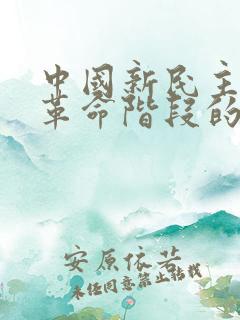 中國新民主
革命階段的
安原依若
未经同意禁止转载